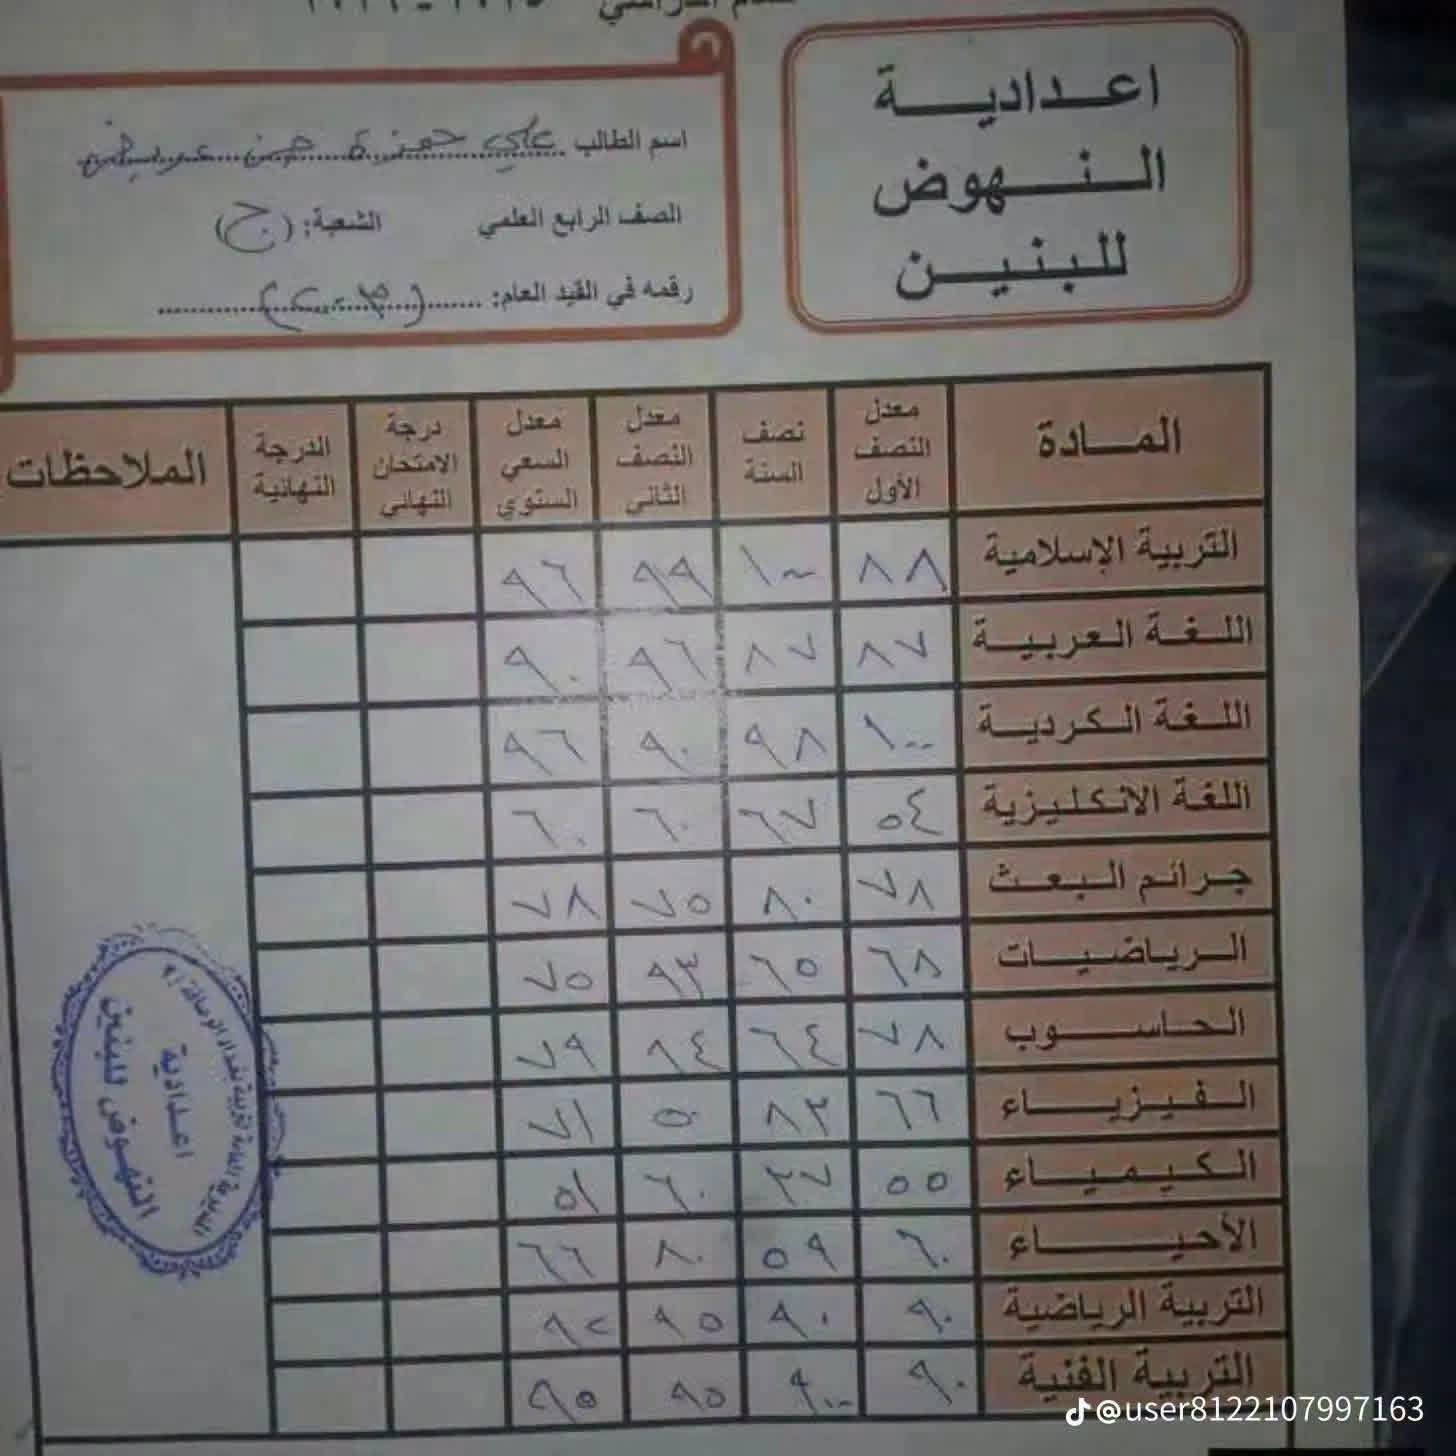 اعدادية
النهوض
للبنين
اسم الطالب علي حمزة حسن
الصف الرابع العلمي الشعبة: (ج)
رقمه في القيد العام:
المادة معدل النصف الأول نصف السنة معدل النصف الثاني معدل السعي السنوي درجة الامتحان النهائي الدرجة النهائية الملاحظات
التربية الإسلامية ٨٨ ١٠٠ ٩٩ ٩٦
اللغة العربية ٨٧ ٨٧ ٩٦ ٩٠
اللغة الكردية ١٠٠ ٩٨ ٩٠ ٩٦
اللغة الانكليزية ٥٤ ٦٧ ٦٠ ٦٠
جرائم البعث ٧٨ ٨٠ ٧٥ ٧٨
الرياضيات ٦٨ ٦٥ ٩٣ ٧٥
الحاسوب ٧٨ ٦٤ ٩٤ ٧٩
الفيزياء ٦٦ ٨٣ ٥٠ ٧١
الكيمياء ٥٥ ٣٧ ٦٠ ٥١
الأحياء ٦٠ ٥٩ ٨٠ ٦٦
التربية الرياضية ٩٠ ٩٠ ٩٥ ٩٢
التربية الفنية ٩٠ ٩٥ ٩٥
اعدادية
النهوض للبنين
@user8122107997163